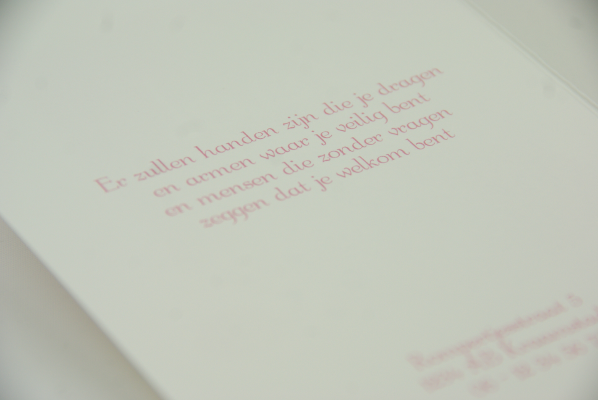 Er zullen handen zijn die je dragen
en armen waar je veilig bent
en mensen die zonder vragen
zeggen dat je welkom bent